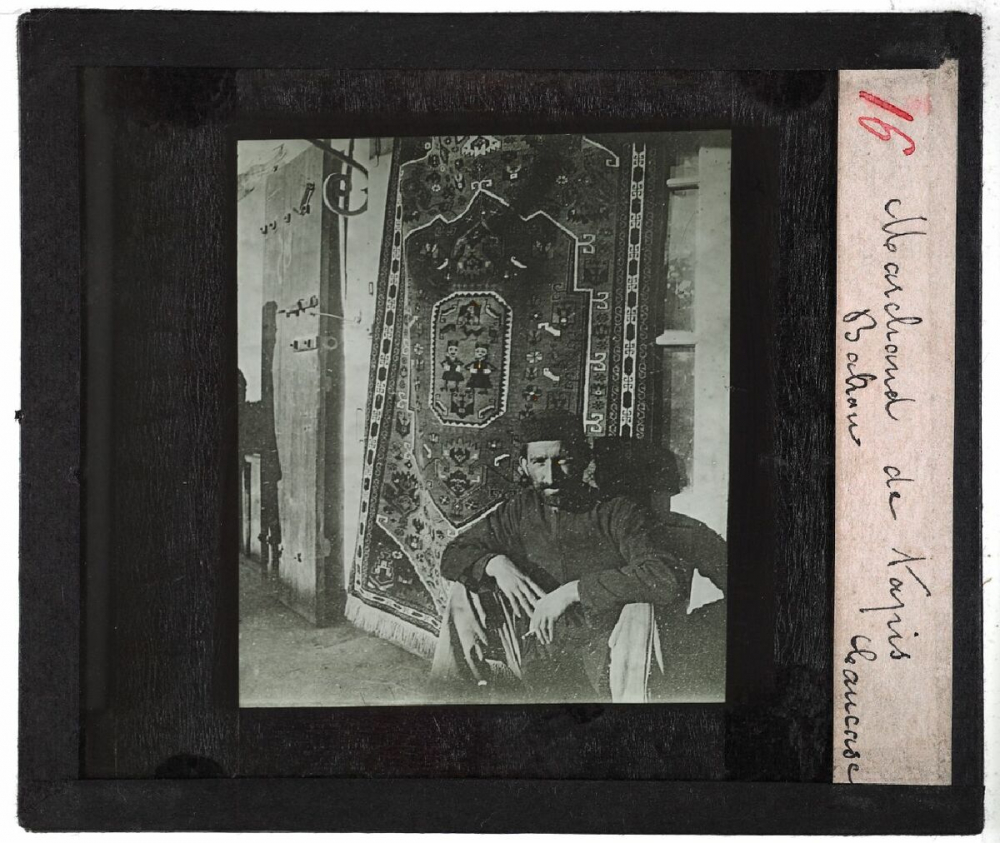 16
Marchand de Tapis
Bakou Caucase